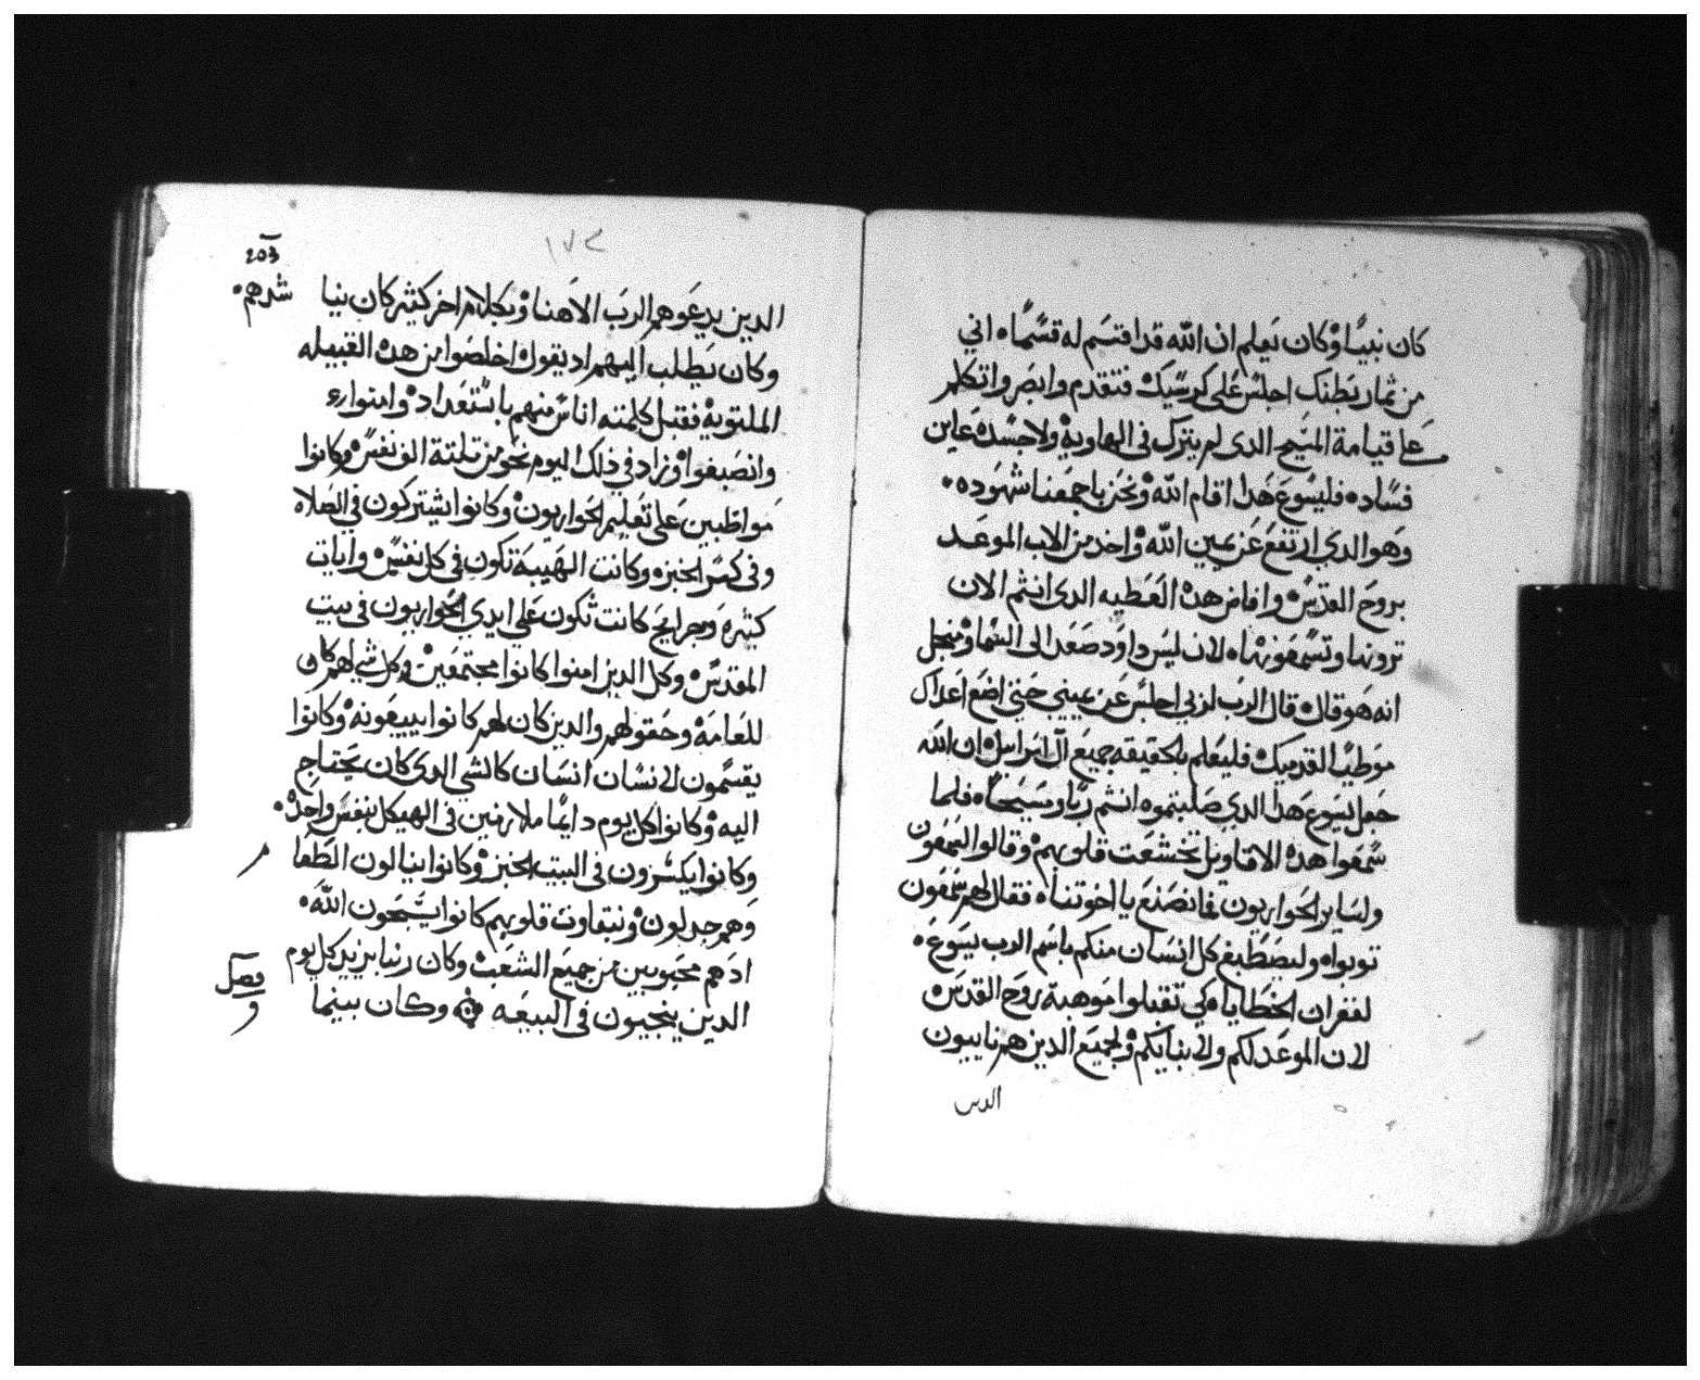 كان نبيًا وكان يعلم ان الله قد اقتسم له قسمًا اني
من ثمار بطنك اجلس على كرسيك فتقدم وابصر واتكلم
على قيامة المسيح الدى لم يترك فى الهاوية ولا جسده عاين
فساده فليسوع هدا اقام الله ونحن باجمعنا شهوده
وهو الدي ارتفع عن يمين الله واخد من الاب الموعد
بروح القدس وافاض هده العطيه الدى انتم الان
ترونها وتسمعونها لان ليس داود صعد الى السما ومن جل
انه هو قال قال الرب لربي اجلس عن يميني حتي اضع اعداك
موطيًا لقدميك فليعلم بالحقيقه جميع آل اسراييل ان الله
جعل يسوع هدا الدي صلبتموه انتم ربًا ومسيحًا فلما
سمعوا هده الاقاويل تخشعت قلوبهم وقالوا لشمعون
ولساير الحواريون فما نصنع يا اخوتنا فقال لهم شمعون
توبوا وليصطبغ كل انسان منكم باسم الرب يسوع
لغفران الخطايا كي تقبلوا موهبة روح القدس
لان الموعد لكم ولابنايكم ولجميع الدين هم ناييون
الدين
١٧٤
203
الدين يدعوهم الرب الاهنا وبكلام اخر كثير كان ينا
شدهم
وكان يطلب اليهم اد يقول اخلصوا من هده القبيله
الملتوية فقبل كلمته اناس منهم باستعداد وامنوا
وانصبغوا وزاد في ذلك اليوم نحو من تلتة الف نفس وكانوا
مواظبين على تعليم الحواريون وكانوا يشتركون في الصلاه
وفى كسر الخبز وكانت الهيبة تكون فى كل نفس وايات
كثيره وجرايح كانت تكون على ايدي الحواريون فى بيت
المقدس وكل الدين امنوا كانوا مجتمعين وكل شي لهم كان
للعامة وحقولهم والدين كان لهم كانوا يبيعونه وكانوا
يقسمون لانسان انسان كالشي الدى كان يحتاج
اليه وكانوا كل يوم دايمًا ملازمين فى الهيكل بنفس واحده
وكانوا يكسرون فى البيت الخبز وكانوا ينالون الطعا
م
وهم جدلون وبنقاوت قلوبهم كانوا يسبحون الله
اد هم محبوبين من جميع الشعب وكان ربنا يزيد كل يوم
الدين ينجيون فى البيعه وكان بينما
فصل
و